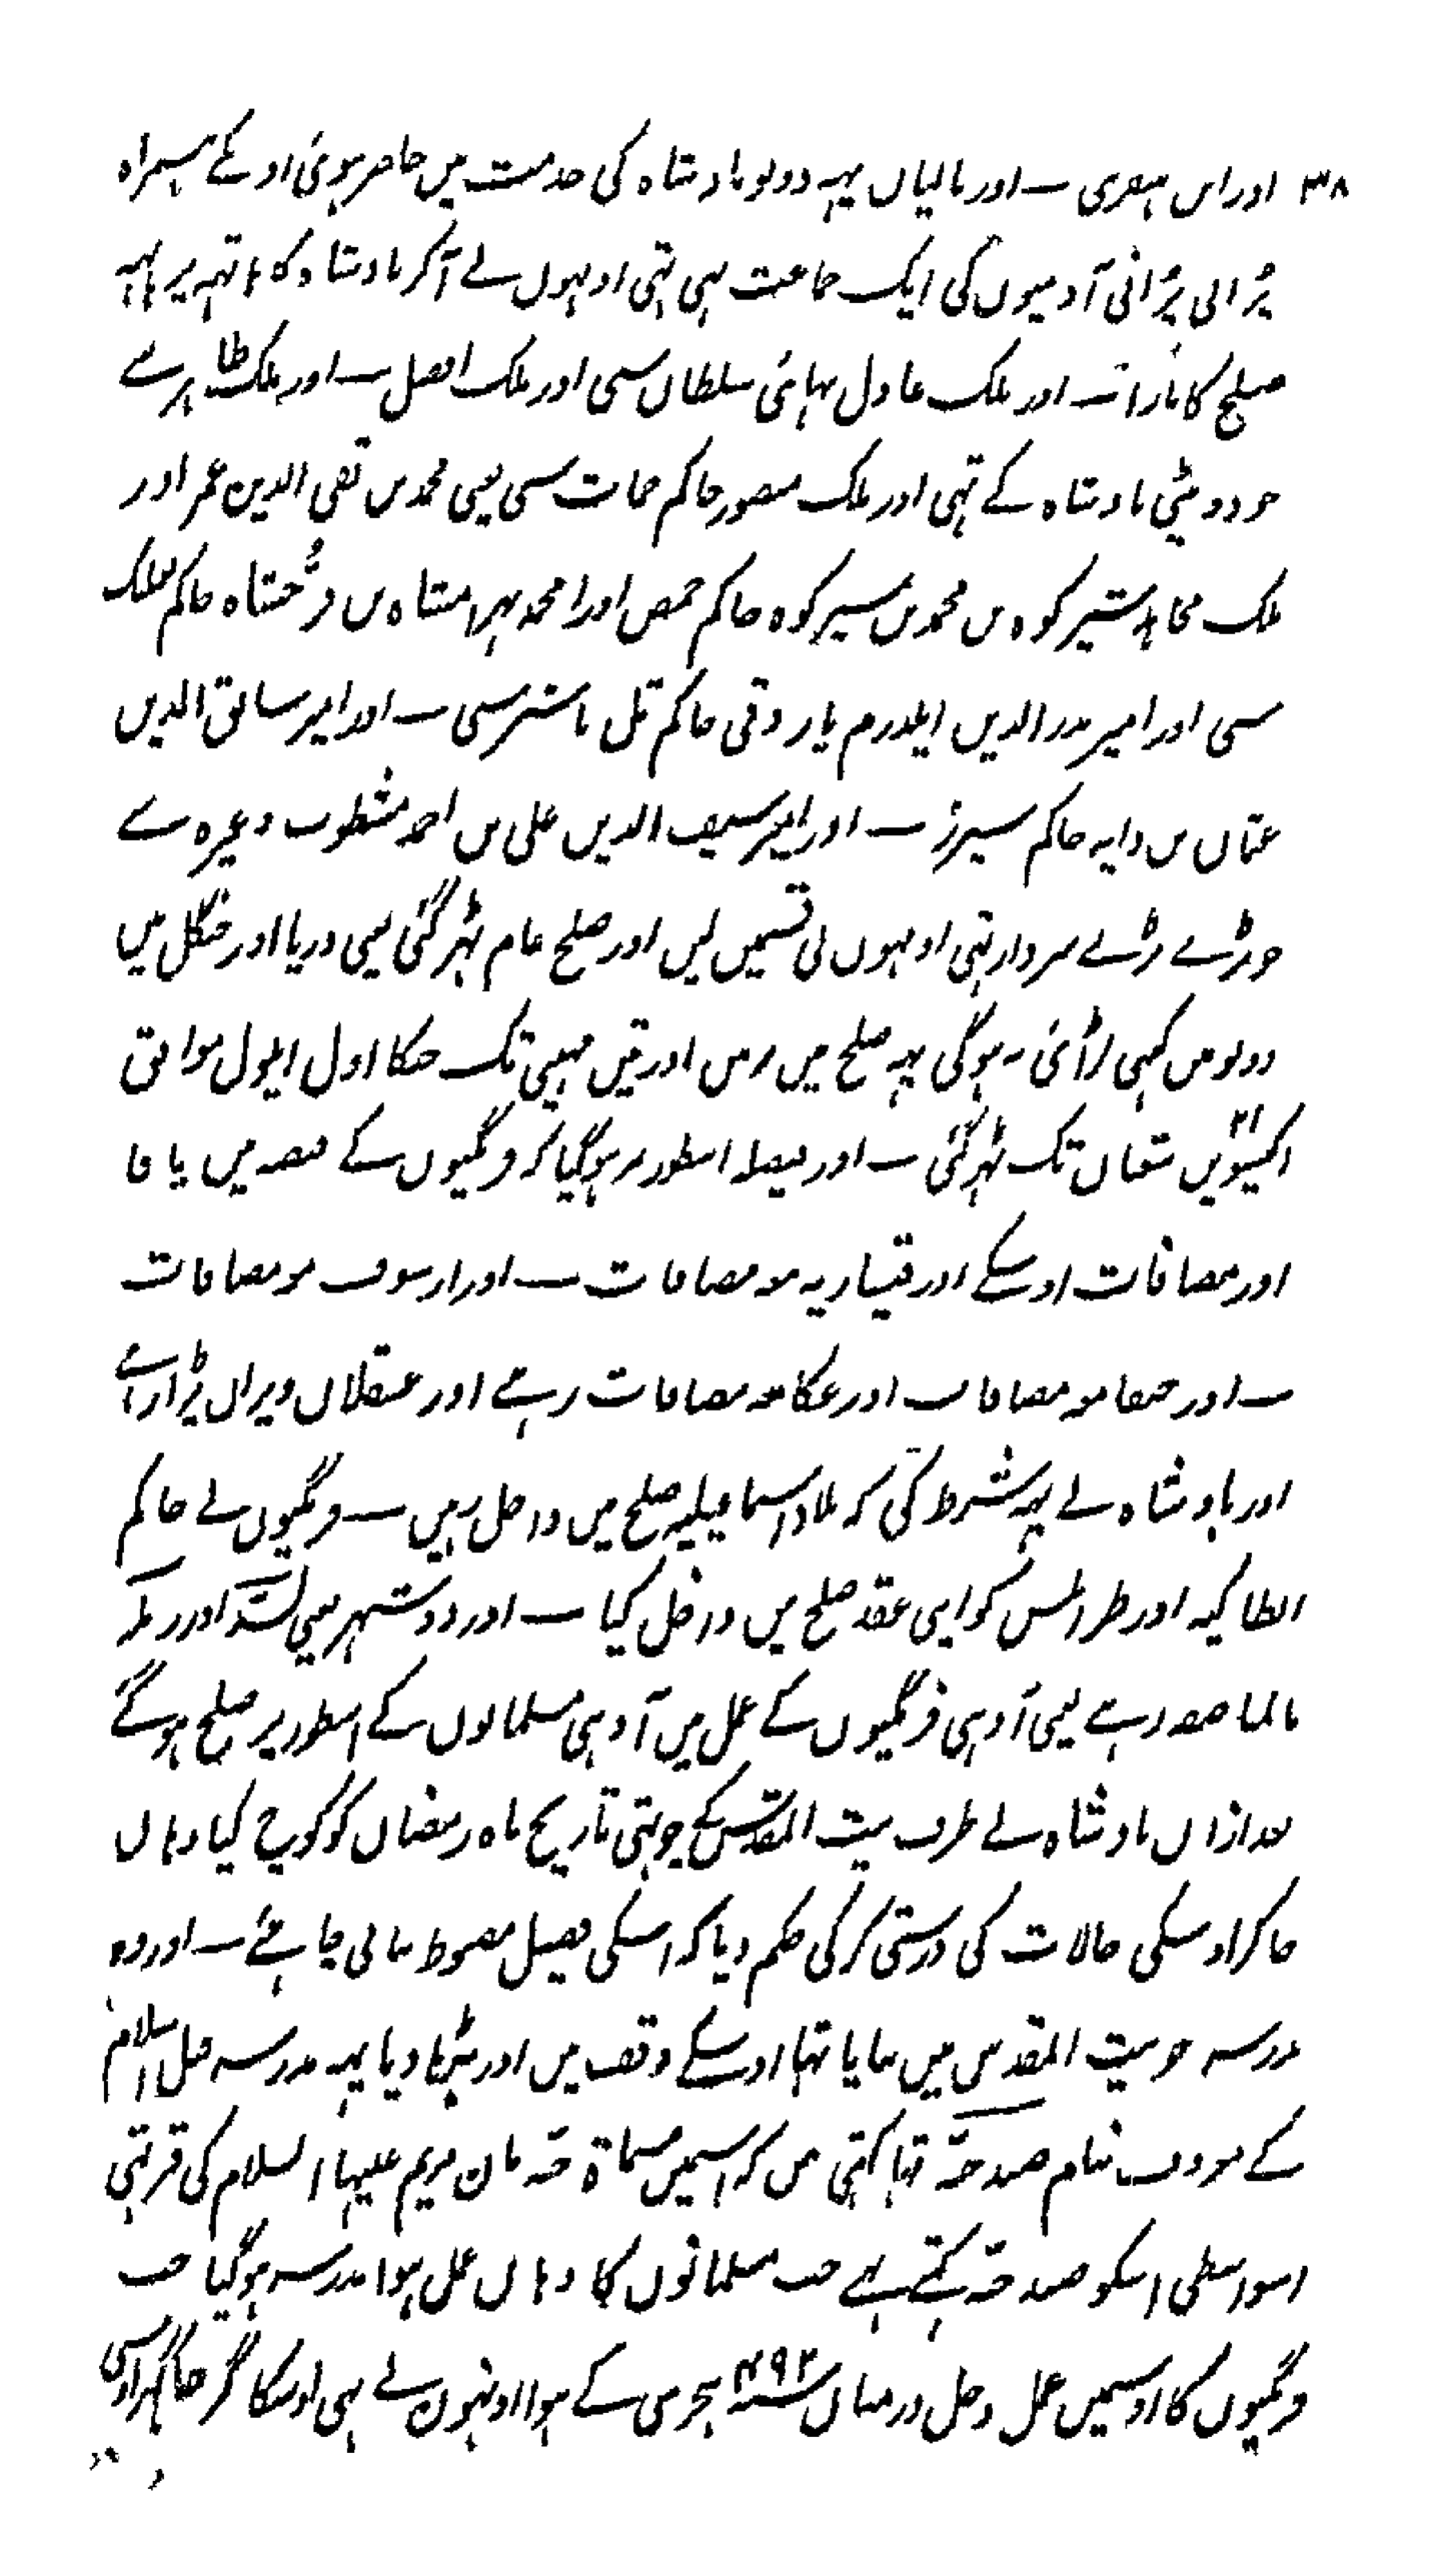 ۳۸ اور ابن ہنفری ۔ اور بالیان یہہ دونو بادشاہ کی خدمت میں حاضر ہوئی اونکے ہمراہ
پُرانی پُرانی آدمیوں کی ایک جماعت بہی تہی اونہوں نے آکر بادشاہ کا ہاتہہ پر ہاتہہ
صلح کا مارا ۔ اور ملک عادل بہائی سلطان سی اور ملک افضل ۔ اور ملک ظاہر سے
جو دو بیٹی بادشاہ کے تہی اور ملک منصور حاکم حمات سی یعنی محمد بن تقی الدین عمر اور
ملک مجاہد شیرکوہ بن محمد بن شیرکوہ حاکم حمص اور امجد بہرامشاہ بن فرُّخشاہ حاکم بعلبک
سی اور امیر بدر الدین ایلدرم یاروقی حاکم تل باشر سی ۔ اور امیر سابق الدین
عثمان بن دایہ حاکم شیزر ۔ اور امیر سیف الدین علی بن احمد مشطوب وغیرہ سے
جو بڑے بڑے سردار تہی اونہوں نی قسمیں لیں اور صلح عام ٹہر گئی یعنی دریا اور جنگل میں
دونو میں کہی لڑائی نہ ہوگی یہہ صلح تین برس اور تین مہینی تک جسکا اول ایلول موافق
اکیسویں ۲۱ شعبان تک ٹہر گئی ۔ اور فیصلہ اسطور پر ہوگیا کہ فرنگیوں کے قبضہ میں یافا
اور مضافات اوسکے اور قیساریہ مو مضافات ۔ اور ارسوف مو مضافات
۔ اور حیفا مو مضافات اور عکا معہ مضافات رہے اور عسقلان ویران پڑا رہے
اور بادشاہ نے یہہ شرط کی کہ بلاد اسماعیلیہ صلح میں داخل رہیں ۔ فرنگیوں نے حاکم
انطاکیہ اور طرابلس کو اپنی عقد صلح میں داخل کیا ۔ اور دو شہر یعنی لُدّ اور رملہ
بالمناصفہ رہے یعنی آدہی فرنگیوں کے عمل میں آدہی مسلمانوں کے اسطور پر صلح ہوگئے
بعد ازاں بادشاہ نے طرف بیت المقدس کے چوتہی تاریخ ماہ رمضان کو کوچ کیا وہاں
جا کر اوسکی حالات کی درستی کر کی حکم دیا کہ اسکی فصیل مضبوط بنائی جاہئے ۔ اور وہ
مدرسہ جو بیت المقدس میں بنایا تہا اوسکے وقف میں اور بڑہا دیا یہہ مدرسہ قبل اسلام
کے معروف بنام صندحنّہ تہا کہتی ہیں کہ اسمیں مسماۃ حنہ مان مریم علیہا السلام کی قبر تہی
اسواسطی اسکو صندحنّہ کہتے ہے جب مسلمانوں کا وہاں عمل ہوا مدرسہ ہوگیا جب
فرنگیوں کا اوسمیں عمل دخل درمیاں سنہ ۴۹۲ ہجری کے ہوا اونہون نے بہی اوسکا گرجا گہر اوسی